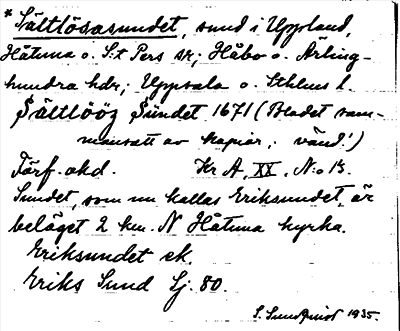 * Sältlösasundet, sund i Uppland,
Håtuna o. S:t Pers sk; Håbo o. Ärling-
hundra hdr; Uppsala o. Sthlms l.
Sältlöög Sündet 1671 (Bladet sam-
mansatt av kopior; vänd!)
Förf. okd. Kr A, XX, N:o 13.
Sundet, som nu kallas Eriksundet är
beläget 2 km. N Håtuna kyrka.
Eriksundet ek.
Eriks Sund Lj. 80.
S. Sundqvist 1935.